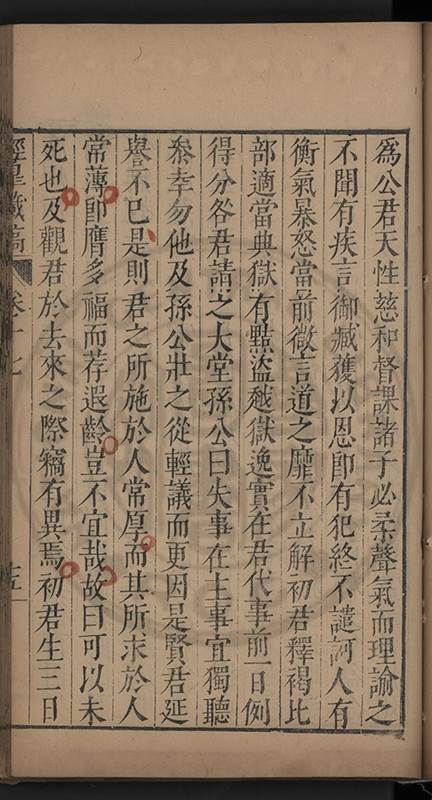 為公君天性慈和督課諸子必柔聲氣而理諭之
不聞有疾言御臧獲以恩即有犯終不譴訶人有
衡氣暴怒當前微言道之靡不立解初君釋褐比
部適當典獄有黠盜越獄逸實在君代事前一日例
得分咎君請之大堂孫公曰失事在主事宜獨聽
叅幸勿他及孫公壯之從輕議而更因是賢君延
譽不已是則君之所施於人常厚而其所求於人
常薄即膺多福而荐遐齡豈不宜哉故曰可以未
死也及觀君於去來之際竊有異焉初君生三日
卷十七
十五